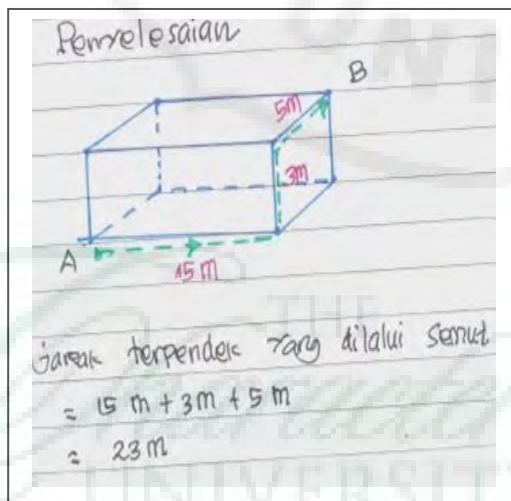 Penyelesaian
B
5m
3m
A
15 m
jarak terpendek yang dilalui semut
= 15 m + 3m + 5 m
= 23 m
THE
UNIVERSITY